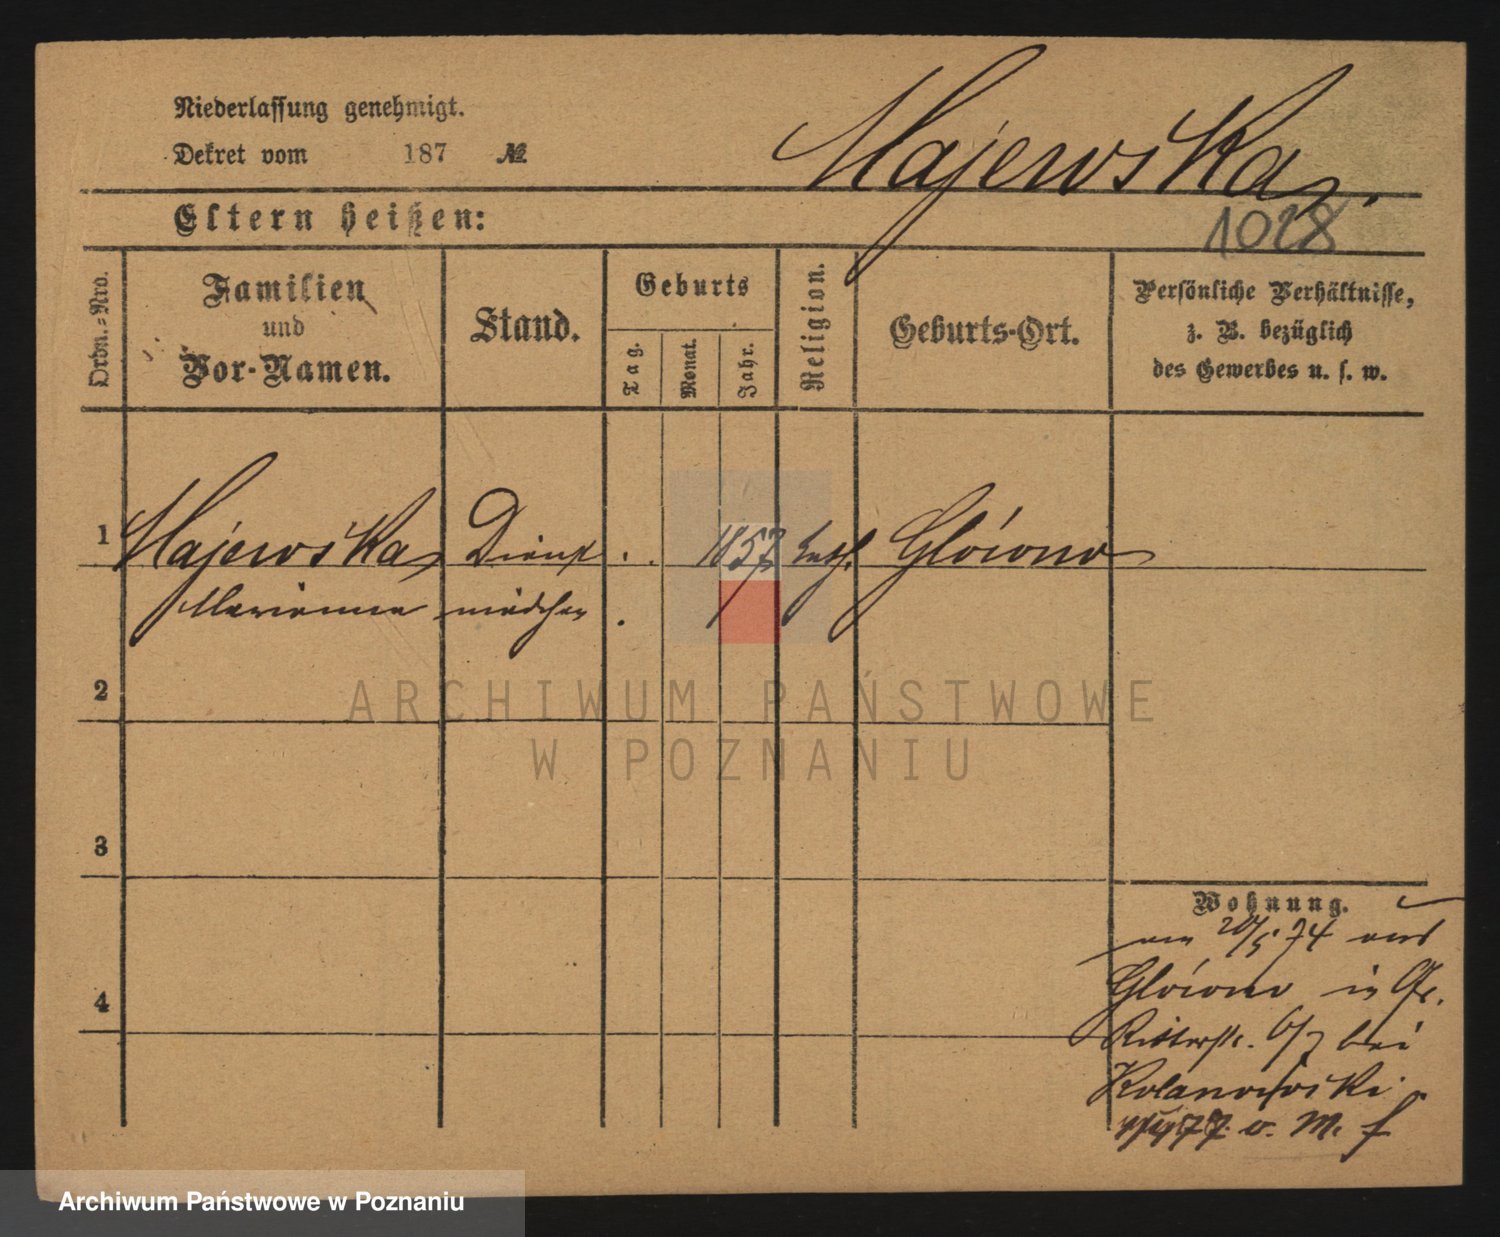 Niederlassung genehmigt.
Dekret vom 187 №
Majewska.
1028
Eltern heißen:
Ordn.-Nro.
Familien
und
Vor-Namen.
Stand.
Geburts
Tag.
Monat.
Jahr.
Religion.
Geburts-Ort.
Persönliche Verhältnisse,
z. B. bezüglich
des Gewerbes u. s. w.
1 Majewska Dienst 1857 kath. Glówno
Marianna mädchen
2
3
4
Wohnung.
am 20/5 74 aus
Glówno in Gr.
Ritterstr. 6/7 bei
Kolanowski
77 v. M. f
ARCHIWUM PAŃSTWOWE
W POZNANIU
Archiwum Państwowe w Poznaniu